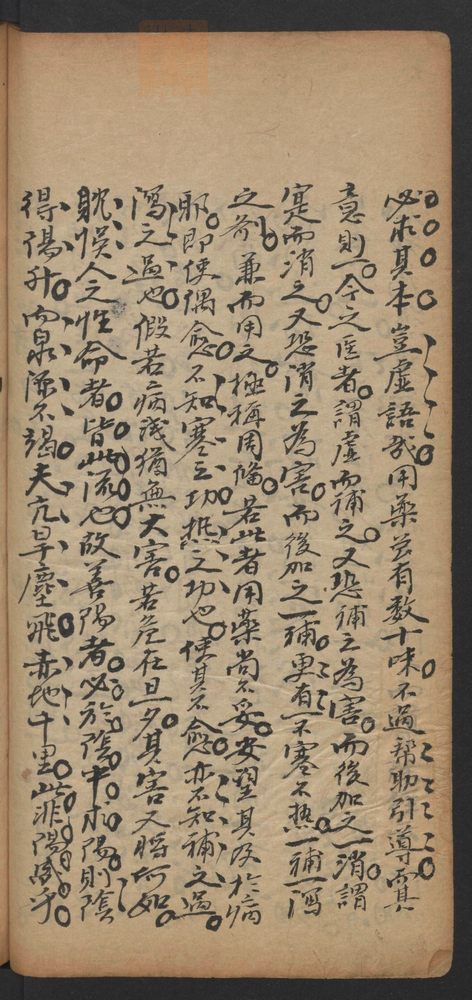 必求其本豈虛語哉用藥雖有數十味不過幫助引導而其
意則一今之医者謂虛而補之又恐補之為害而後加之一消謂
寔而消之又恐消之為害而後加之一補更有一不寒不熱一補一瀉
之劑兼而用之極稱周俻若此者用藥尚不妥安望其及於病
耶即使偶愈不知寒之功抑熱之功也使其不愈亦不知補之過
瀉之過也假若病淺猶無大害若危在旦夕其害又將何如
躭悮人之性命者皆此流也故善陽者必於陰中求陽則陰
得陽升而泉源不竭夫亢旱塵飛赤地千里此非陽盛乎